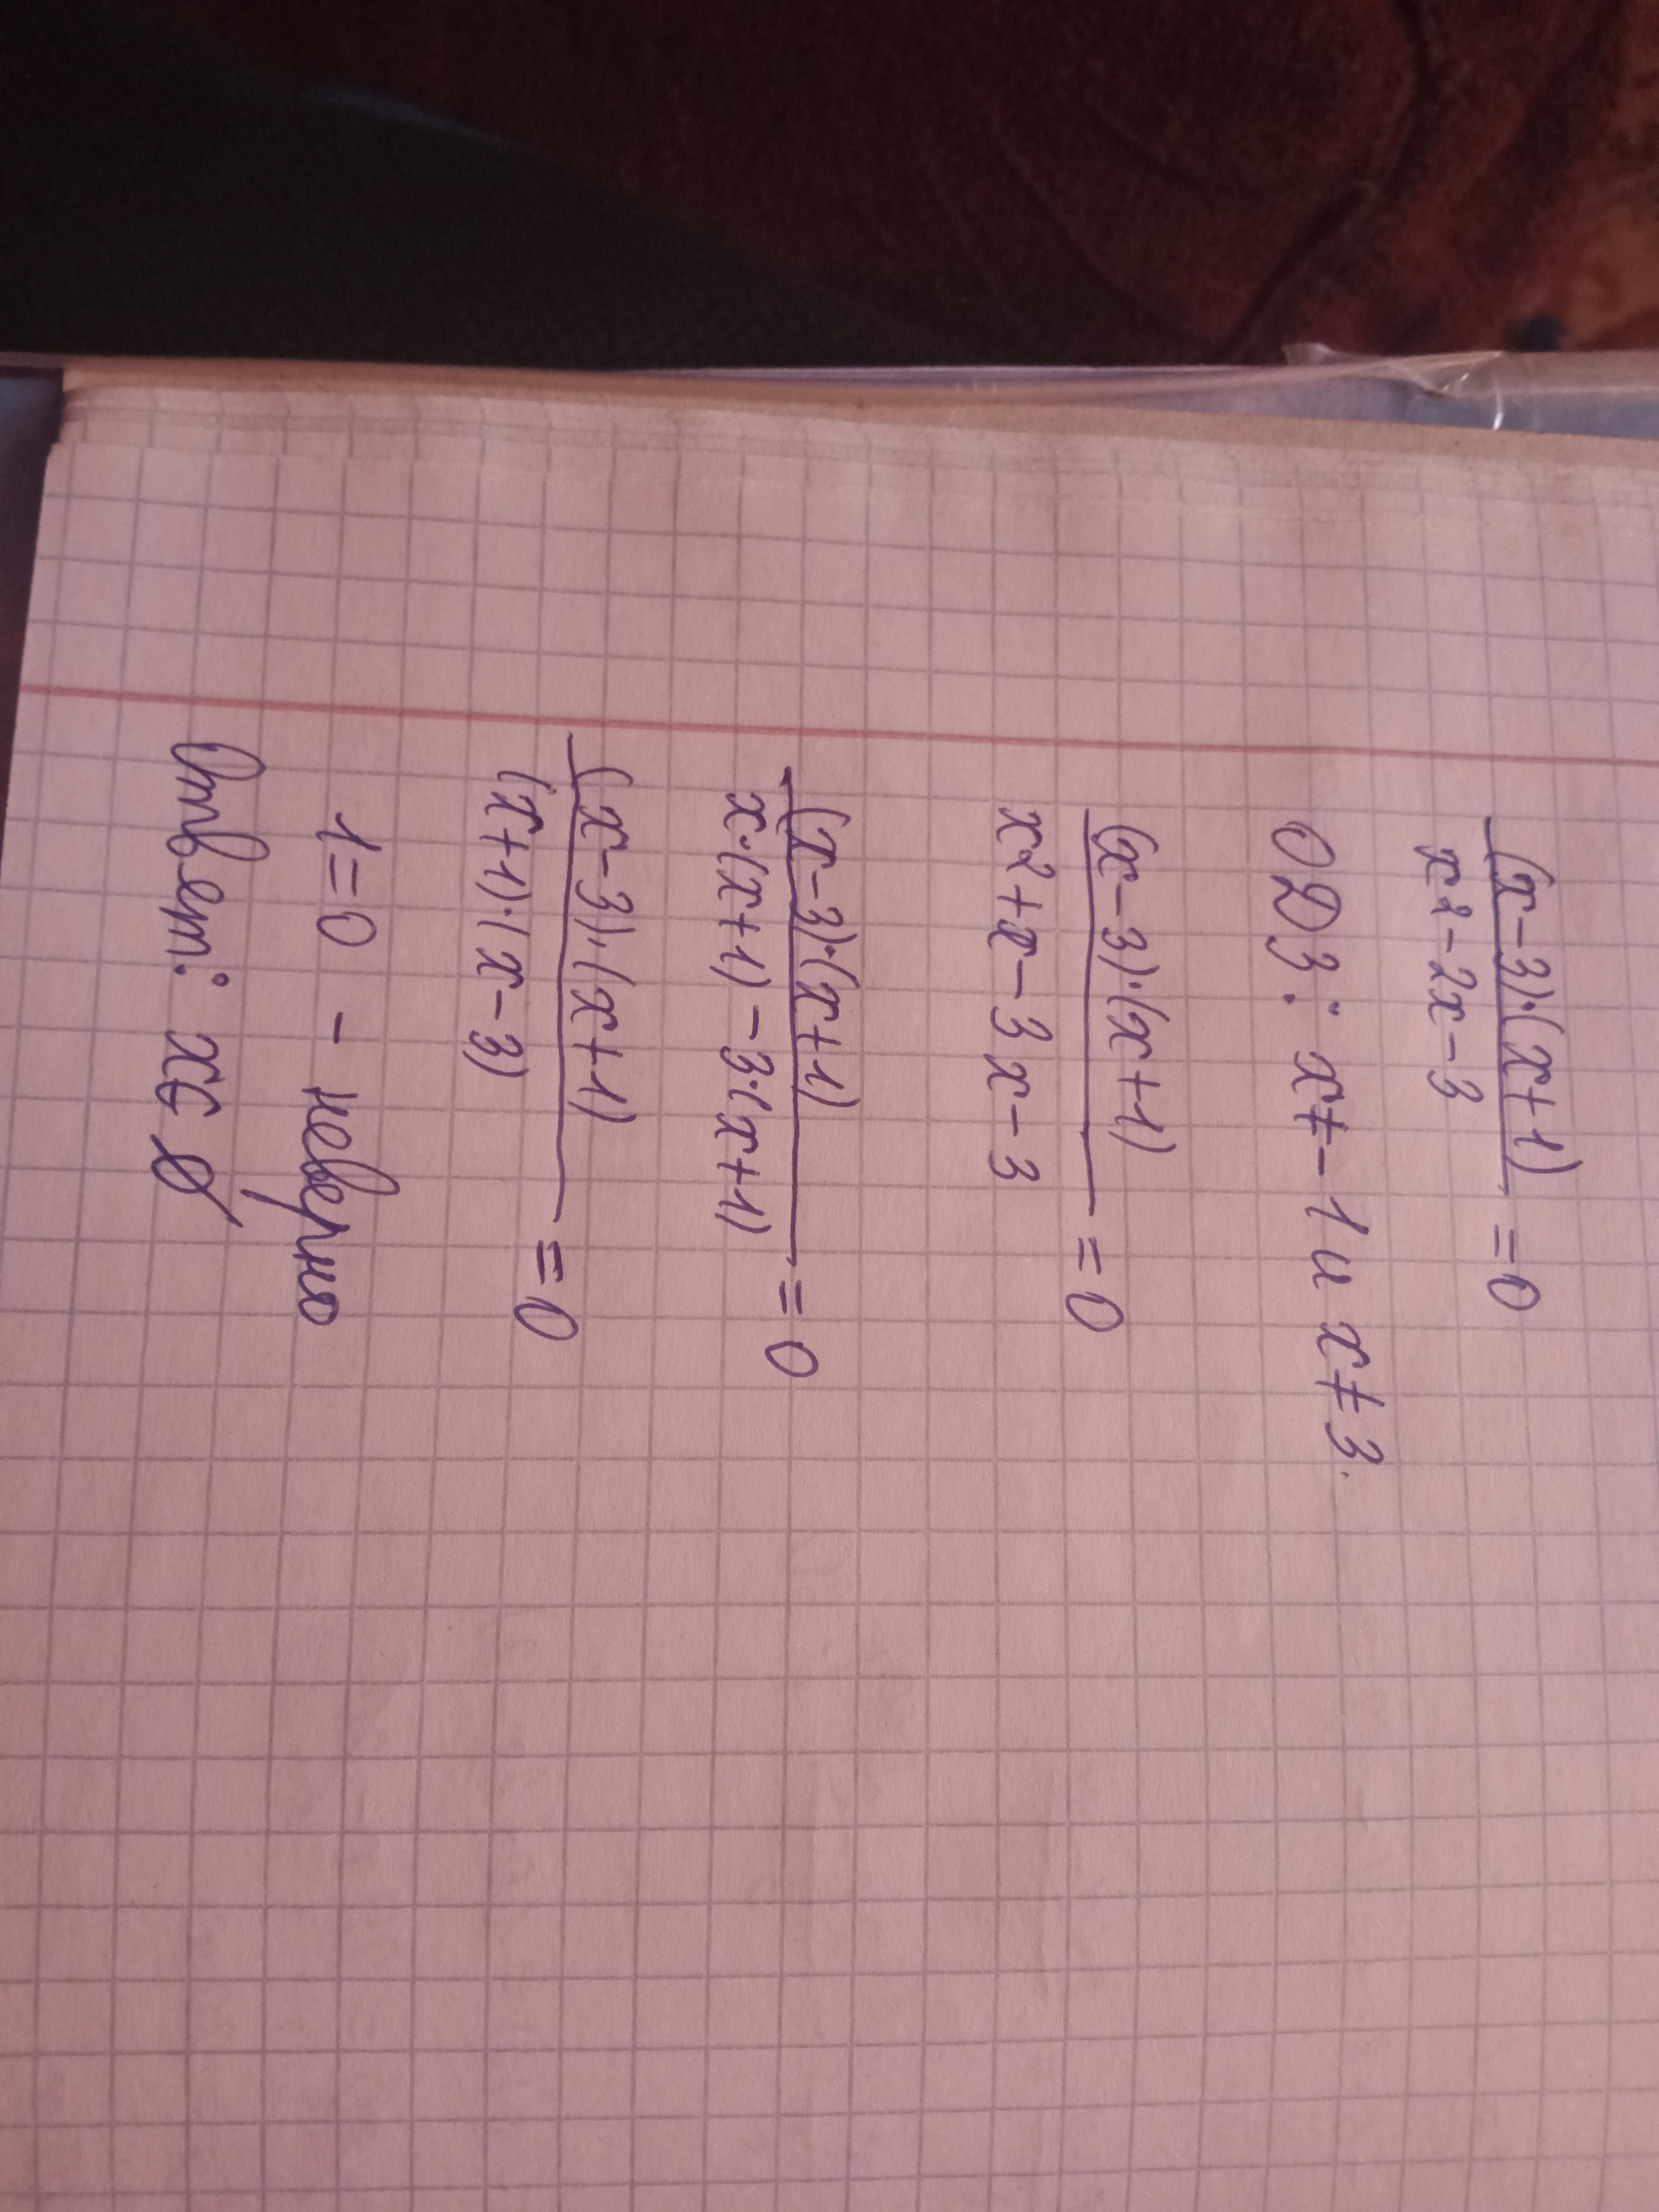 (x-3)·(x+1)/x²-2x-3 = 0
ОДЗ: x≠-1 и x≠3.
(x-3)·(x+1)/x²+x-3x-3 = 0
(x-3)·(x+1)/x·(x+1)-3·(x+1) = 0
(x-3)·(x+1)/(x+1)·(x-3) = 0
1=0 - неверно
Ответ: x∈ ∅